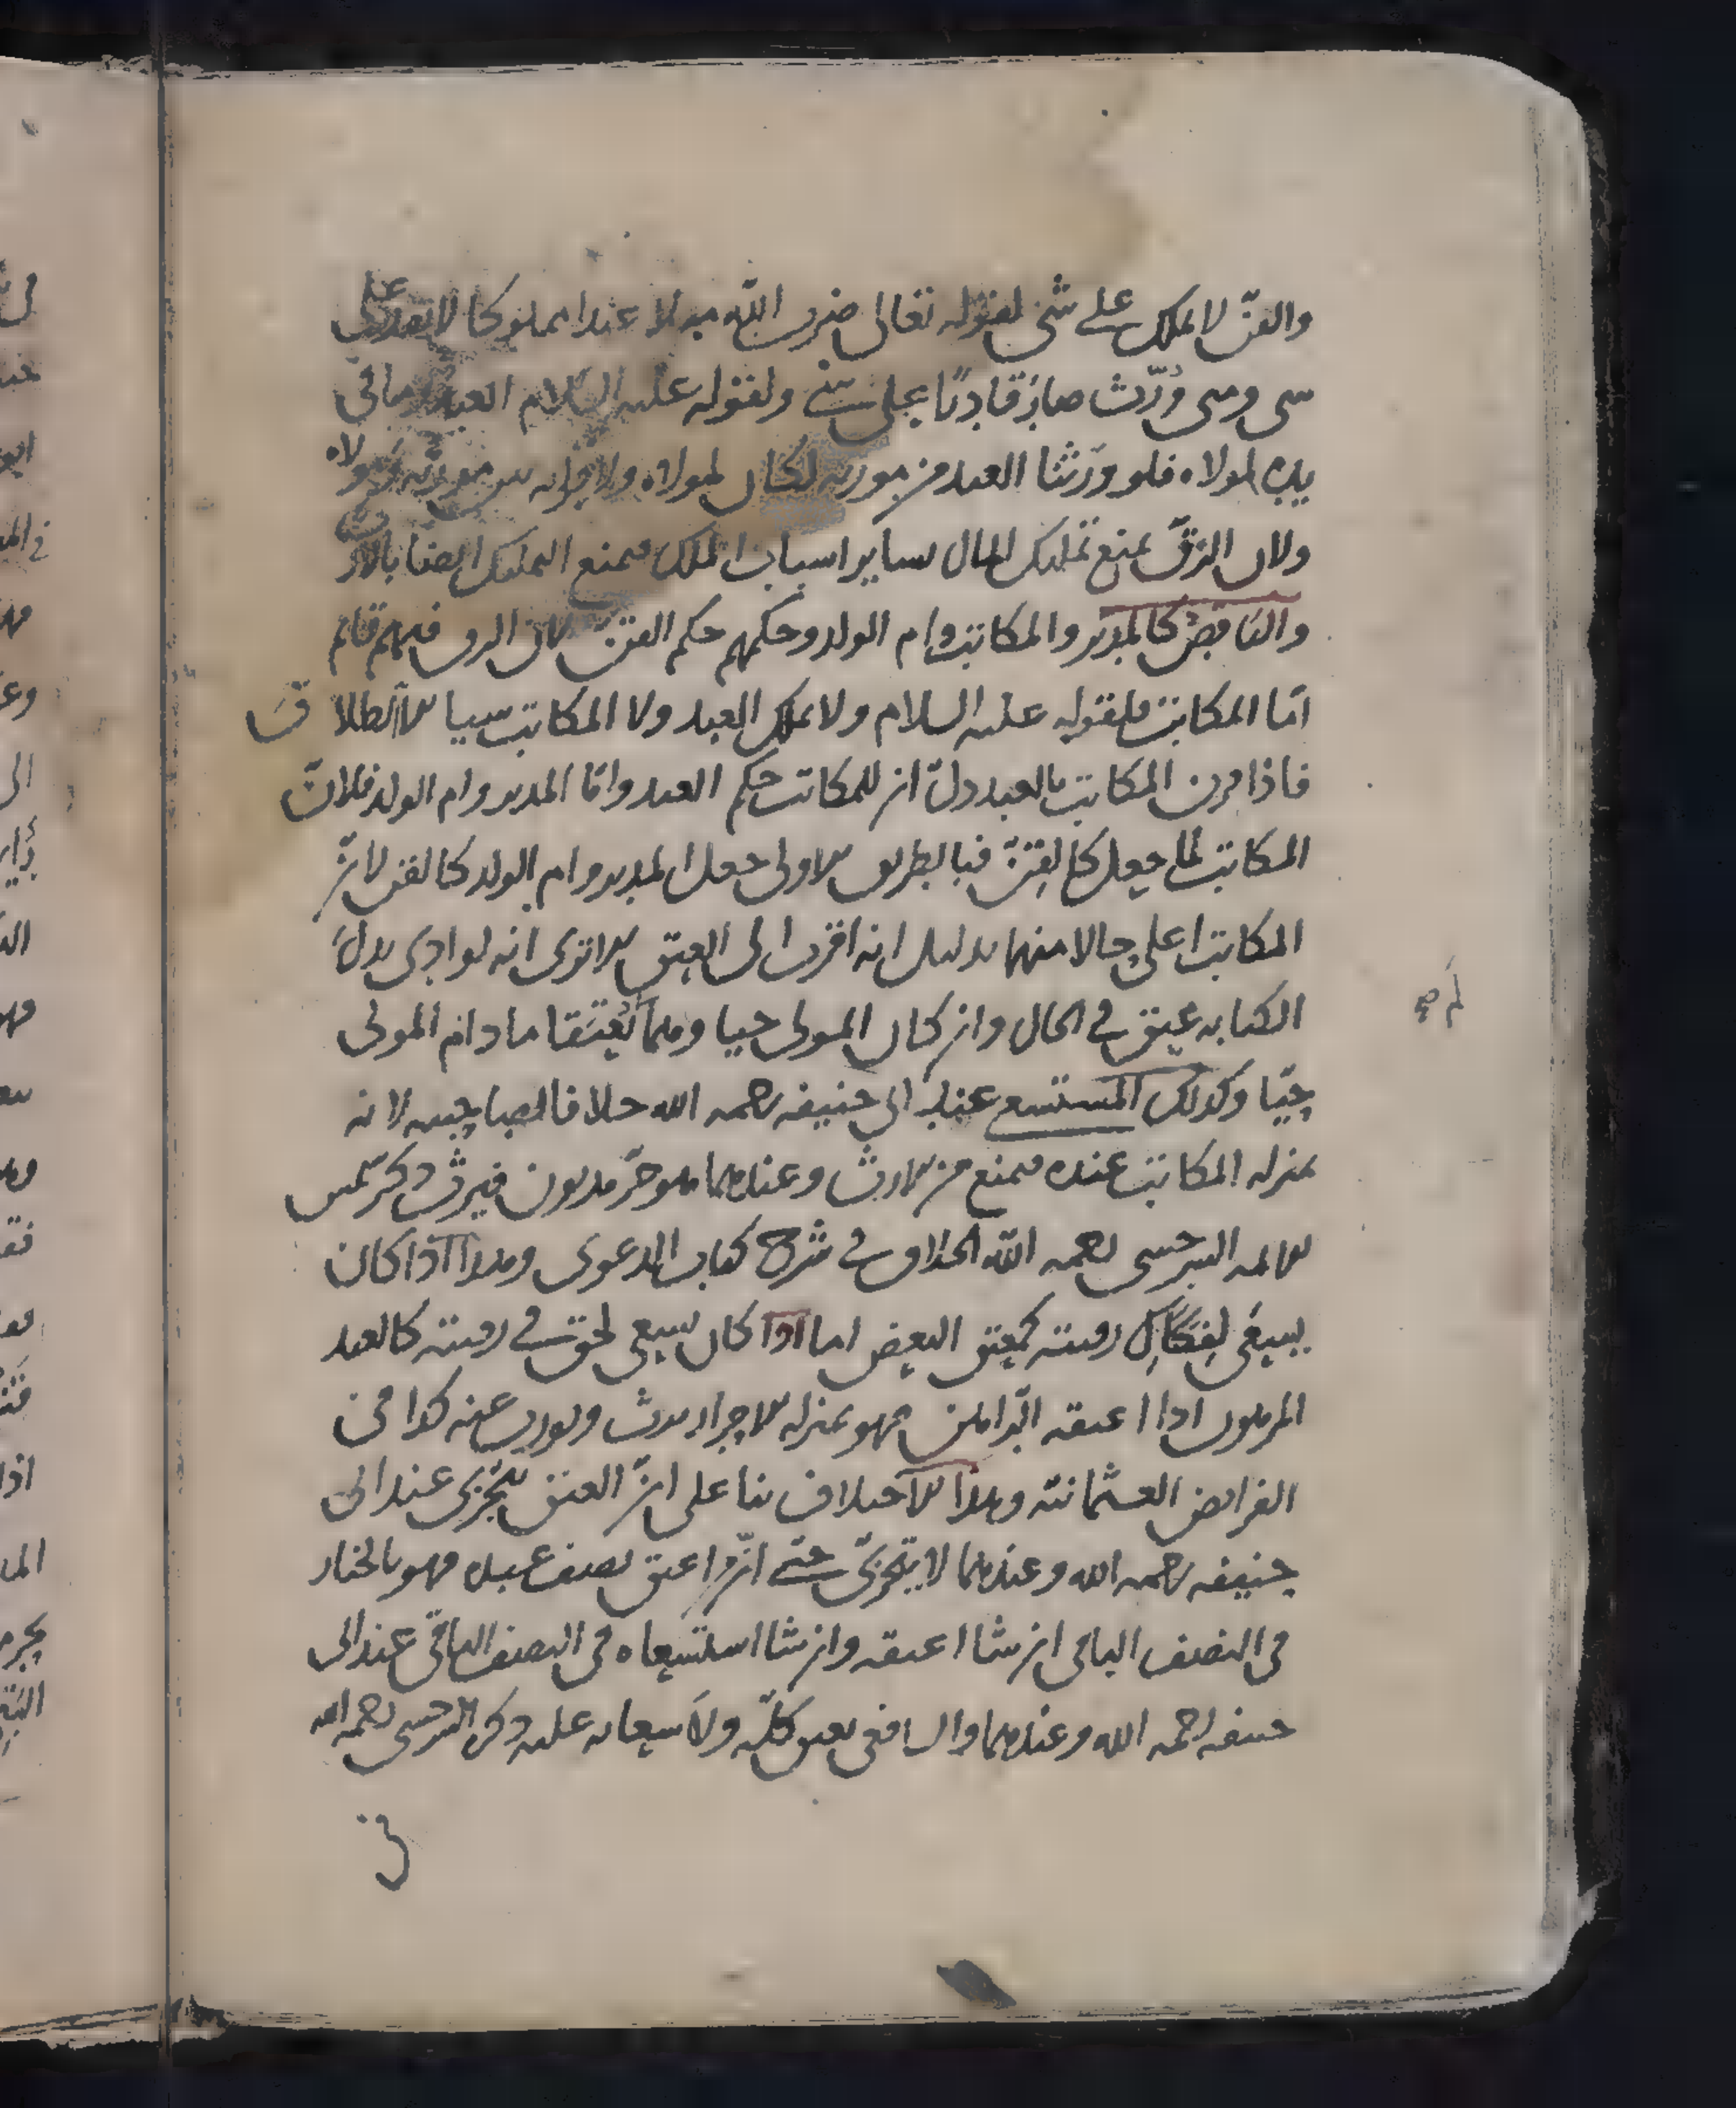 والقنّ لا يملك على شيء لقوله تعالى ضرب الله مثلا عبدا مملوكا لا يقدر على
شي ومتى ورّث صار قادرًا على شيء ولقوله عليه السلام العبد وما في
يده لمولاه فلو ورّثنا العبد من مورثه لكان لمولاه ولا قرابه بين مورثه ومولاه
ولان الرّقّ يمنع تملك المال بساير اسباب الملك فيمنع التملك ايضا بالارث
والناقص كالمدبّر والمكاتب وام الولد وحكمهم حكم القنّ لان الرق فيهم قائم
امّا المكاتب فلقوله عليه السلام ولا يملك العبد ولا المكاتب شيا الا الطلاق
فاذا قرن المكاتب بالعبد دلّ ان للمكاتب حكم العبد وامّا المدبر وام الولد فلانّ
المكاتب لما جعل كالقنّ فبالطريق الاولى جعل المدبر وام الولد كالقن لانّ
المكاتب اعلى حالا منهما بدليل انه اقرب الى العتق الا ترى انه لو ادى بدل
الكتابه عتق في الحال وان كان المولى حيا وهما لم يعتقا ما دام المولى
حيّا وكذلك المستسعى عند ابي حنيفه رحمه الله خلافا لصاحبيه لانه
بمنزله المكاتب عنده فيمنع من الارث وعندهما هو حرّ مديون فيرث ذكر شمس
الايمه السرخسي رحمه الله الخلاف في شرح كتاب الدعوى وهذا اذا كان
يسعى لفكاك رقبته كمعتق البعض اما اذا كان يسعى لحق في رقبته كالعبد
المرهون اذا اعتقه الرّاهن فهو بمنزله الاحرار يرث ويورث عنه كذا في
الفرايض العثمانيّه وهذا الاختلاف بنا على انّ العتق يتجزى عند ابي
حنيفه رحمه الله وعندهما لا يتجزى حتى انّ من اعتق نصف عبده فهو بالخيار
في النصف الباقي ان شا اعتقه وان شا استسعاه في النصف الباقي عند ابي
حنيفه رحمه الله وعندهما والشافعي يعتق كلّه ولا سعايه عليه ذكر السرخسي رحمه الله
في